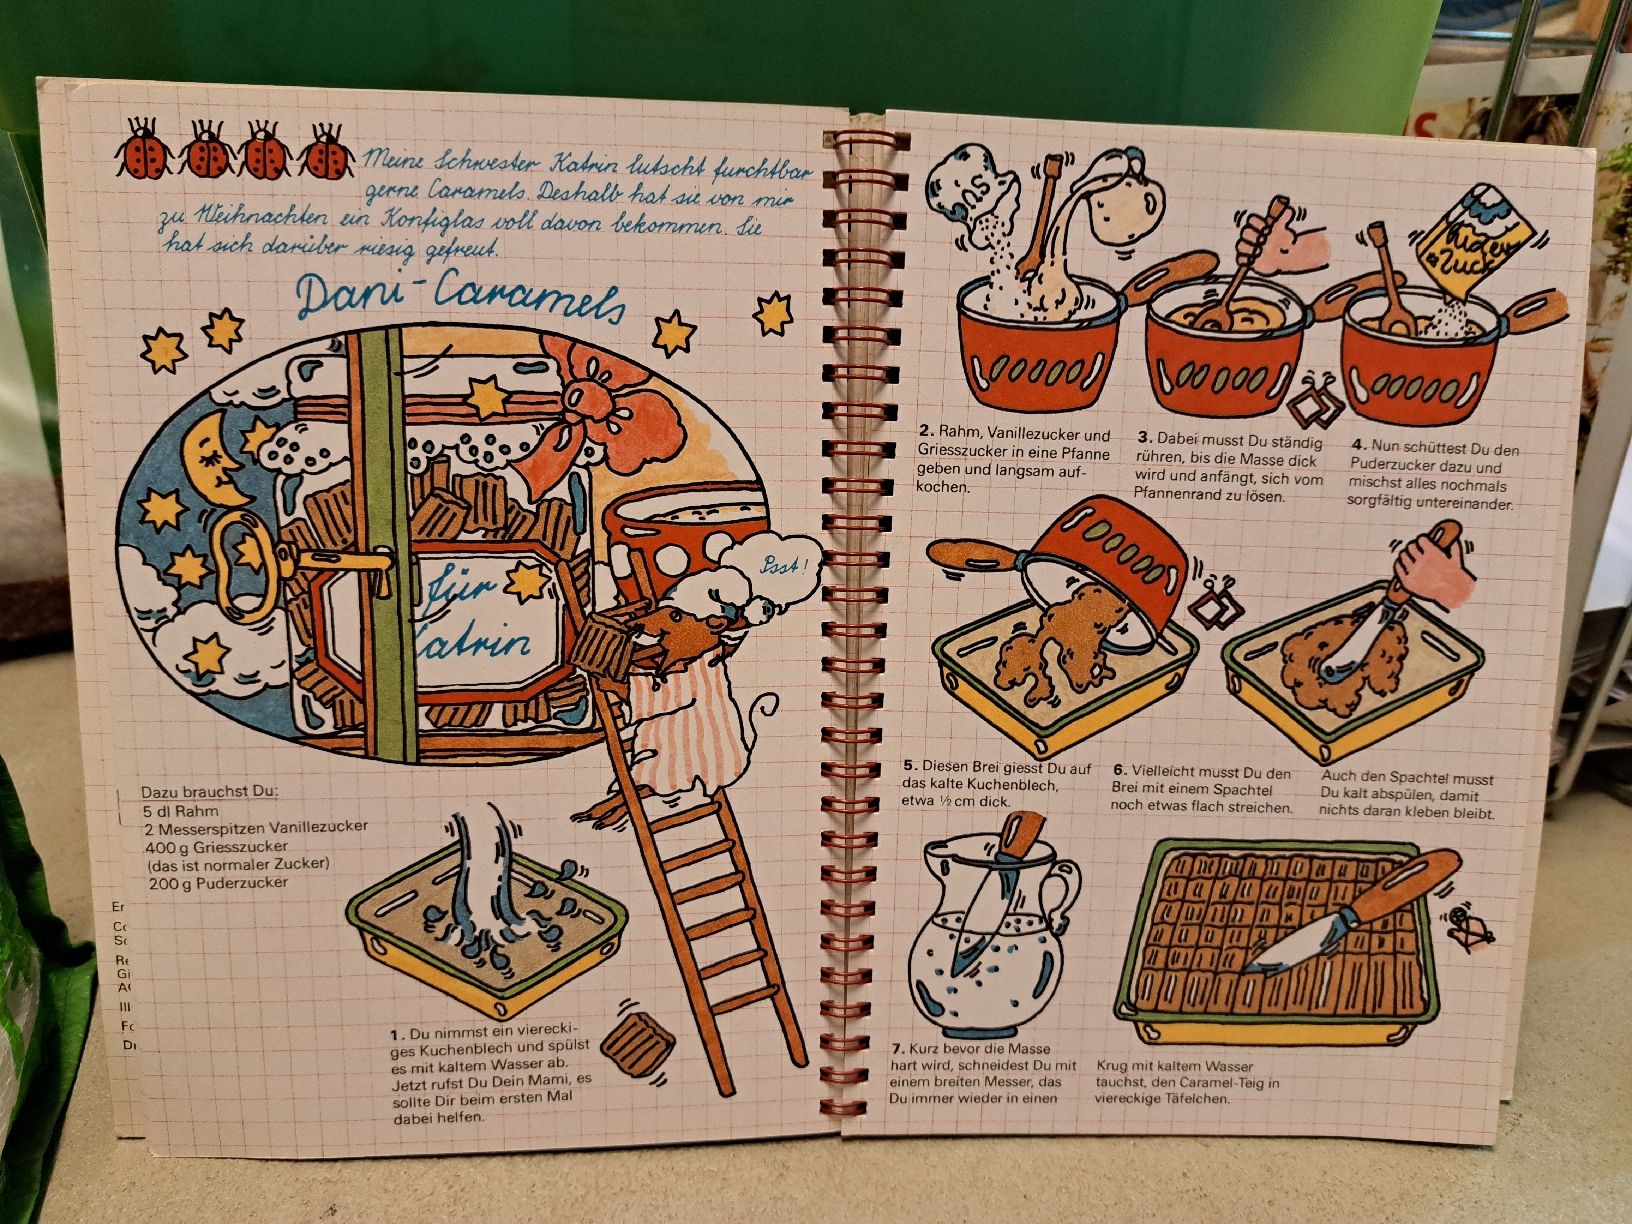 Meine Schwester Katrin lutscht furchtbar
gerne Caramels. Deshalb hat sie von mir
zu Weihnachten ein Konfiglas voll davon bekommen. Sie
hat sich darüber riesig gefreut.
Dani-Caramels
für
Katrin
Psst!
Dazu brauchst Du:
5 dl Rahm
2 Messerspitzen Vanillezucker
400 g Griesszucker
(das ist normaler Zucker)
200 g Puderzucker
1. Du nimmst ein vierecki-
ges Kuchenblech und spülst
es mit kaltem Wasser ab.
Jetzt rufst Du Dein Mami, es
sollte Dir beim ersten Mal
dabei helfen.
2. Rahm, Vanillezucker und
Griesszucker in eine Pfanne
geben und langsam auf-
kochen.
3. Dabei musst Du ständig
rühren, bis die Masse dick
wird und anfängt, sich vom
Pfannenrand zu lösen.
4. Nun schüttest Du den
Puderzucker dazu und
mischst alles nochmals
sorgfältig untereinander.
5. Diesen Brei giesst Du auf
das kalte Kuchenblech,
etwa ½ cm dick.
6. Vielleicht musst Du den
Brei mit einem Spachtel
noch etwas flach streichen.
Auch den Spachtel musst
Du kalt abspülen, damit
nichts daran kleben bleibt.
7. Kurz bevor die Masse
hart wird, schneidest Du mit
einem breiten Messer, das
Du immer wieder in einen
Krug mit kaltem Wasser
tauchst, den Caramel-Teig in
viereckige Täfelchen.